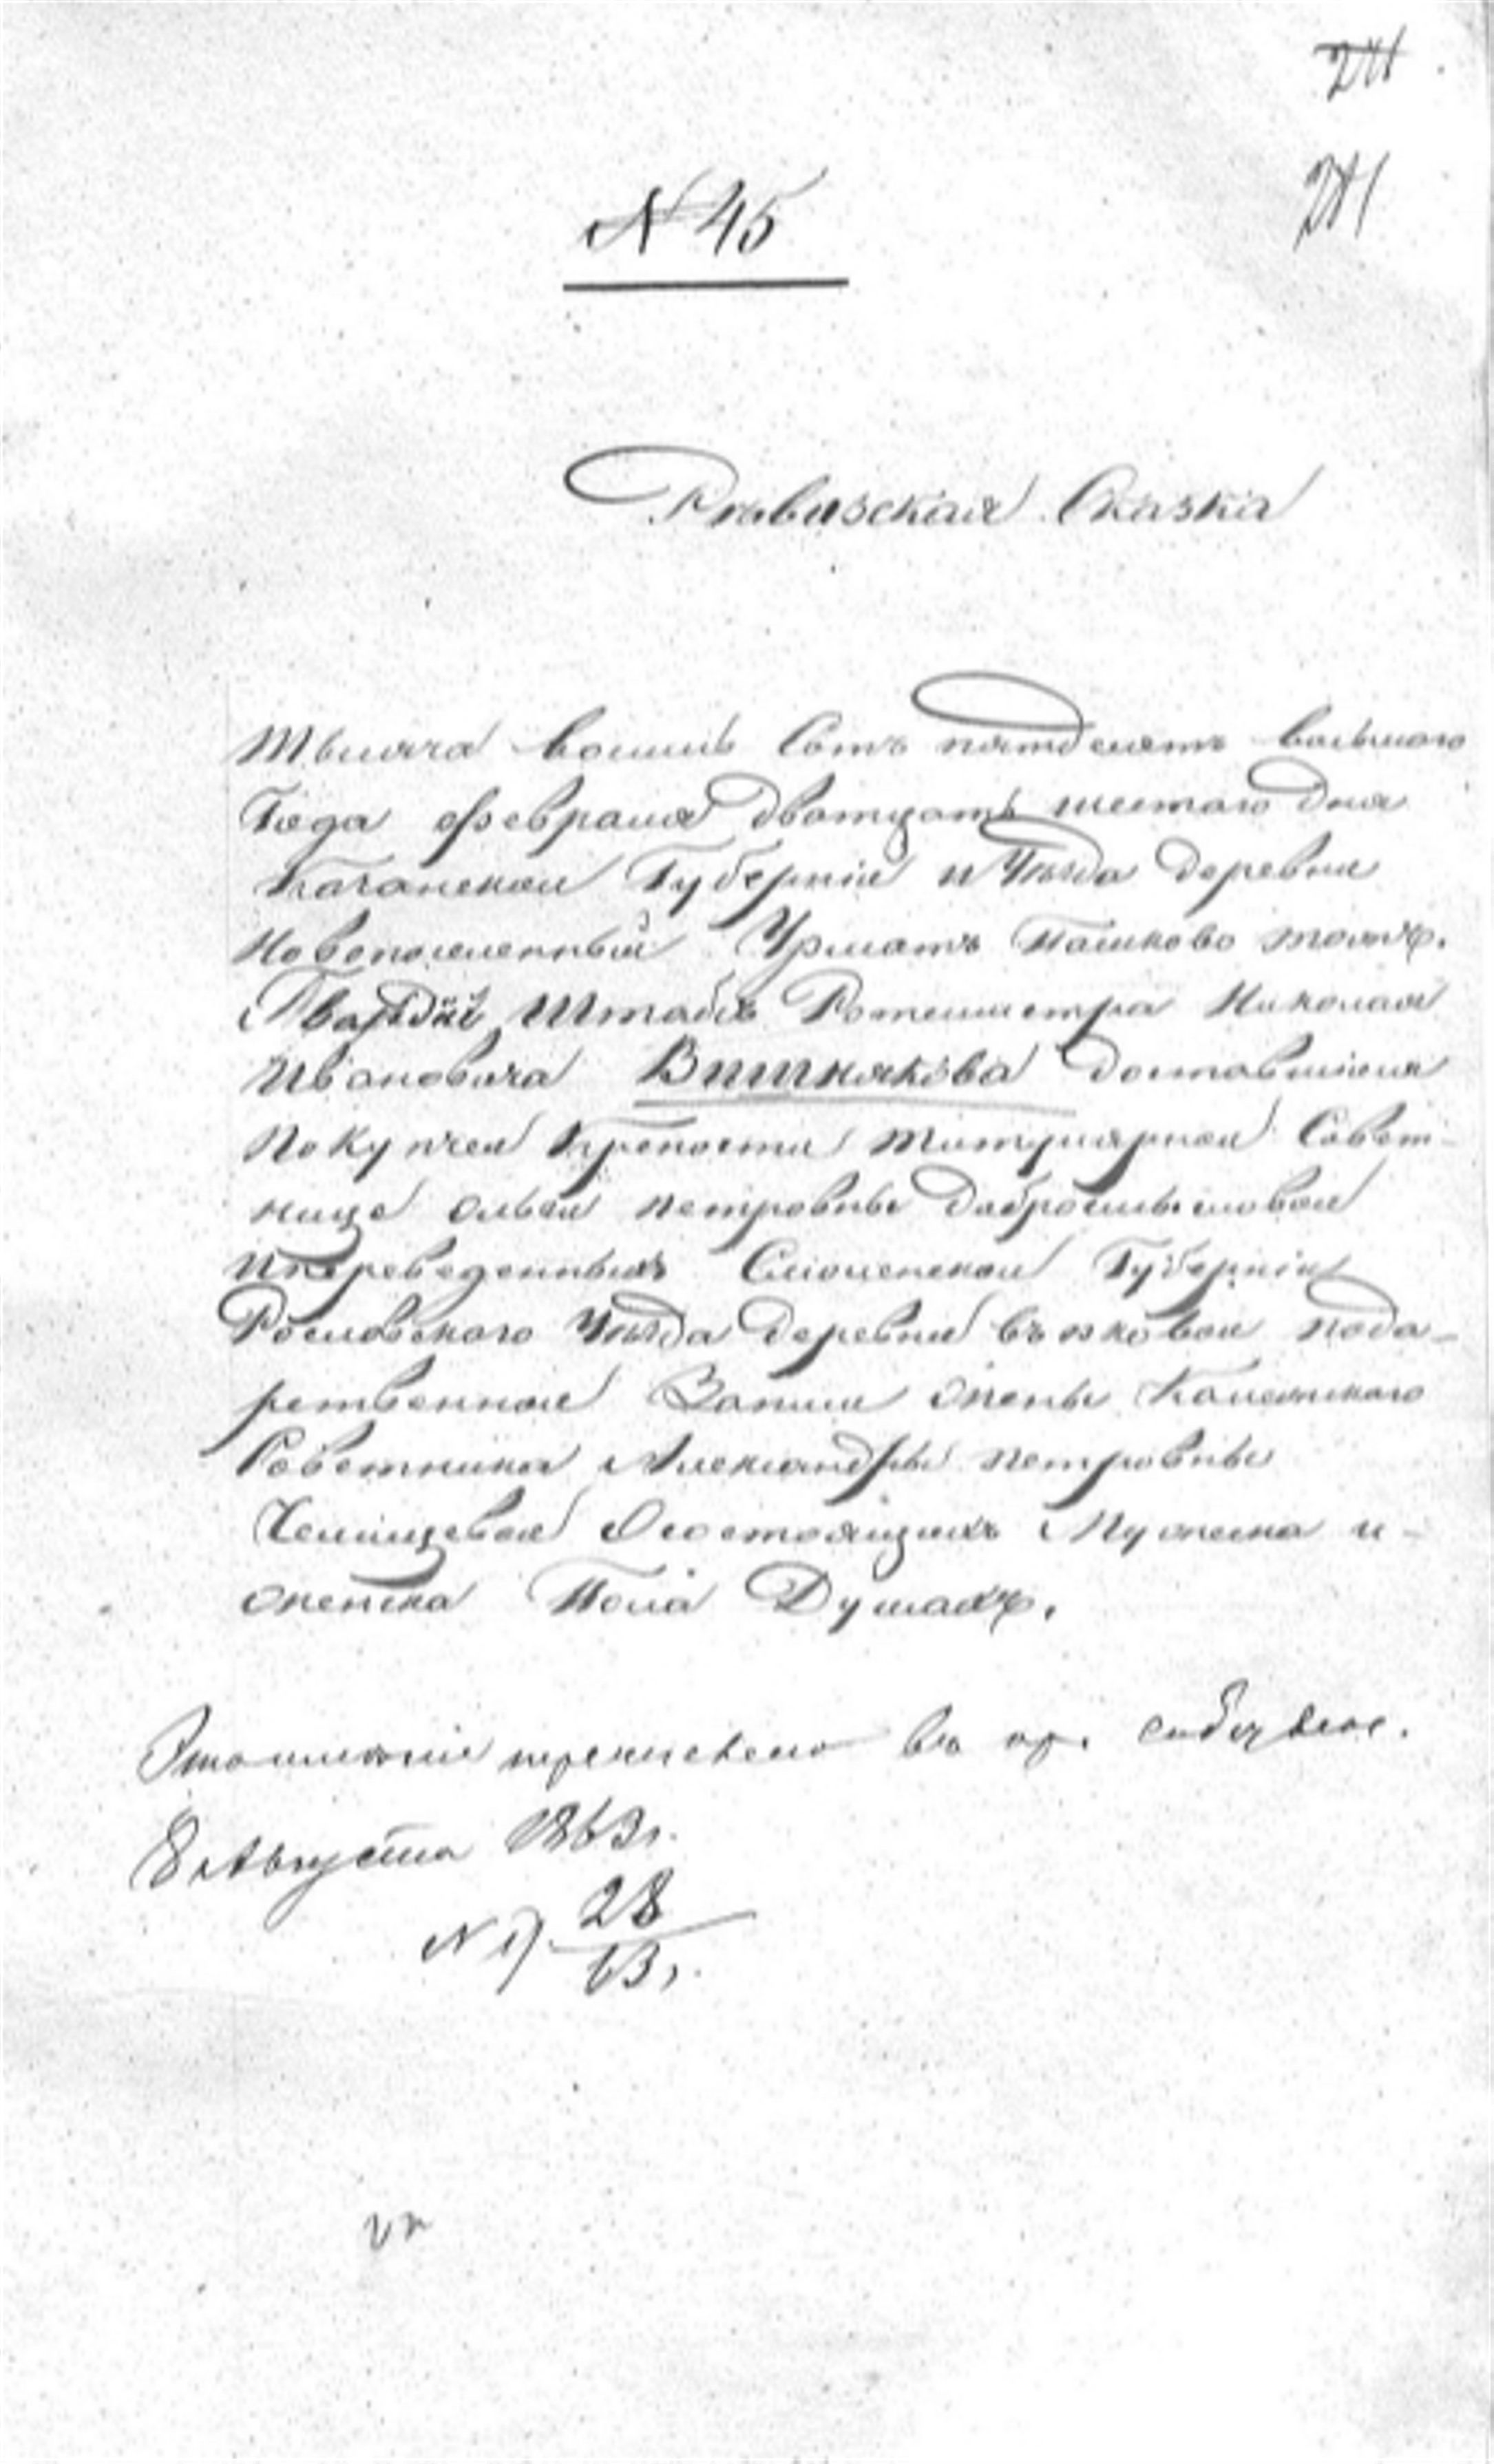 241
241
N 45
Ревизская Сказка
Тысяча восимь Сотъ пятдесятъ восьмого
Года февраля двотцать шестаго дня
Казанской Губерніи и Уѣзда деревни
Новопоселенный Урматъ Пашково тожъ.
Гвардіи Штабъ Ротмистра Николая
Ивановича Вишнякова доставшіяся
Покупчей Крепости титулярной Совет-
нице Ольги петровны Добросмысловой
ипереведенныхъ Смоленской Губерніи
Рословского Уѣзда деревни пода-
рственной Записи жены Колежского
Советника Александры петровны
Челищевой Осостоящихъ Мужеска и-
женска Пола Душахъ.
перечислено въ кр. собствен.
8 Августа 1863 г.
N 28
63 г.